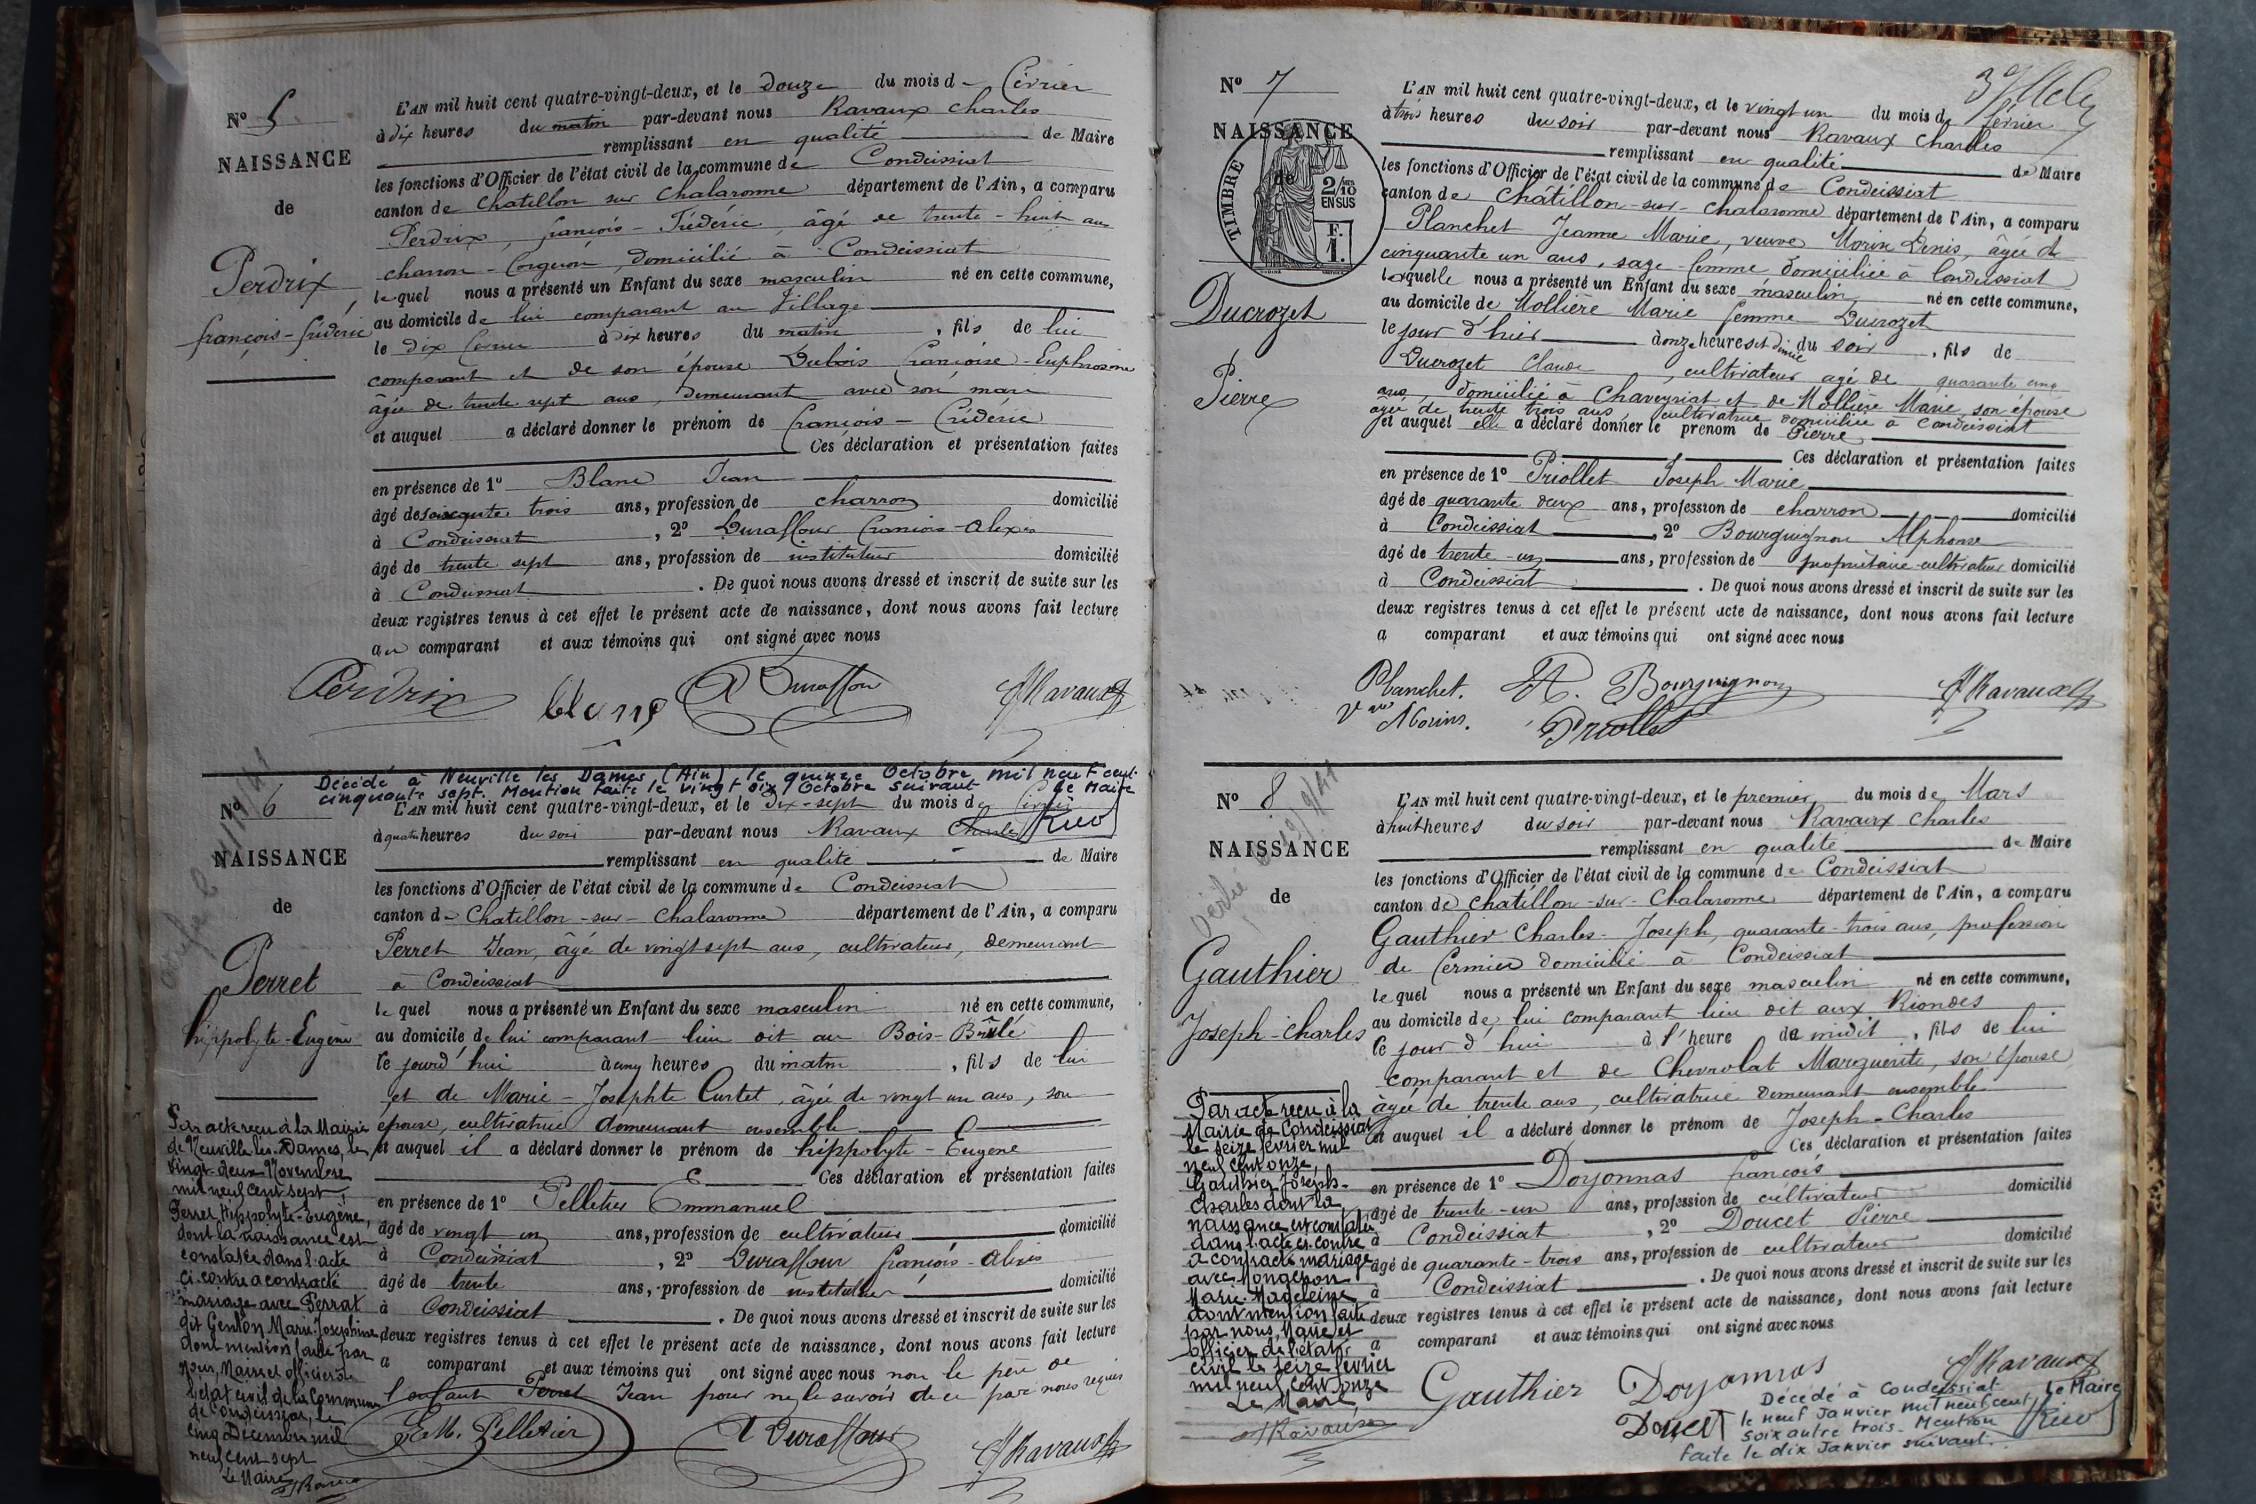 N° 5
NAISSANCE
de
Perdrix
françois-frédéric
L'AN mil huit cent quatre-vingt-deux, et le douze du mois de février
à dix heures du matin par-devant nous Ravaux Charles
remplissant en qualité de Maire
les fonctions d'Officier de l'état civil de la commune de Condeissiat
canton de Chatillon sur Chalaronne département de l'Ain, a comparu
Perdrix, françois-Fréderic, âgé de trente-huit ans
charron-forgeron, domicilié à Condeissiat
lequel nous a présenté un Enfant du sexe masculin né en cette commune,
au domicile de lui comparant au Village
le dix février à dix heures du matin, fils de lui
comparant et de son épouse Dubois Françoise-Euphrosine
âgée de trente sept ans, demeurant avec son mari
et auquel a déclaré donner le prénom de François-Frédéric
Ces déclaration et présentation faites
en présence de 1° Blanc Jean
âgé de soixante trois ans, profession de charron domicilié
à Condeissiat, 2° Duraffour François-Alexis
âgé de trente sept ans, profession de instituteur domicilié
à Condeissiat. De quoi nous avons dressé et inscrit de suite sur les
deux registres tenus à cet effet le présent acte de naissance, dont nous avons fait lecture
au comparant et aux témoins qui ont signé avec nous
Perdrix blanc A Duraffour Ravaux
Décédé à Neuville les Dames (Ain) le quinze Octobre mil neuf cent
cinquante sept. Mention faite le vingt dix Octobre suivant Le Maire
N° 6
NAISSANCE
de
Perret
hippolyte-Eugène
L'AN mil huit cent quatre-vingt-deux, et le dix-sept du mois de février
à quatre heures du soir par-devant nous Ravaux Charles
remplissant en qualité de Maire
les fonctions d'Officier de l'état civil de la commune de Condeissiat
canton de Chatillon-sur-Chalaronne département de l'Ain, a comparu
Perret Jean, âgé de vingt sept ans, cultivateur, demeurant
à Condeissiat
le quel nous a présenté un Enfant du sexe masculin né en cette commune,
au domicile de lui comparant lieu dit au Bois-Brûlé
le jourd'hui à cinq heures du matin, fils de lui
et de Marie-Josephte Curtet, âgée de vingt un ans, son
épouse, cultivatrice demeurant ensemble
et auquel il a déclaré donner le prénom de hippolyte-Eugène
Ces déclaration et présentation faites
en présence de 1° Pelletier Emmanuel
âgé de vingt un ans, profession de cultivateur domicilié
à Condeissiat, 2° Duraffour françois-alexis
âgé de trente ans, profession de instituteur domicilié
à Condeissiat. De quoi nous avons dressé et inscrit de suite sur les
deux registres tenus à cet effet le présent acte de naissance, dont nous avons fait lecture
a comparant et aux témoins qui ont signé avec nous non le père de
l'enfant Perret Jean pour ne le savoir de ce par nous requis
Em. Pelletier A Duraffour Ravaux
Par acte reçu à la Mairie
de Neuville-les-Dames, le
vingt-deux Novembre
mil neuf cent sept,
Perret Hippolyte-Eugène,
dont la naissance est
constatée dans l'acte
ci-contre a contracté
mariage avec Perrat
dit Genton Marie-Josephine
dont mention faite par
nous, Maire et officier de
l'état civil de la Commune
de Condeissiat, le
cinq Décembre mil
neuf cent sept
Le Maire
Ravaux
N° 7
NAISSANCE
de
TIMBRE
2/10
EN SUS
F.
1.
Ducrozet
Pierre
L'AN mil huit cent quatre-vingt-deux, et le vingt un du mois de février
à trois heures du soir par-devant nous Ravaux Charles
remplissant en qualité de Maire
les fonctions d'Officier de l'état civil de la commune de Condeissiat
canton de Châtillon-sur-Chalaronne département de l'Ain, a comparu
Planchet Jeanne Marie, veuve Morin Denis, âgée de
cinquante un ans, sage-femme domiciliée à Condeissiat
laquelle nous a présenté un Enfant du sexe masculin né en cette commune,
au domicile de Mollière Marie femme Ducrozet
le jour d'hier à onze heures et demie du soir, fils de
Ducrozet Claude, cultivateur agé de quarante cinq
ans, domicilié à Chaveyriat et de Mollière Marie son épouse
agée de trente trois ans, cultivatrice domiciliée à Condeissiat
et auquel elle a déclaré donner le prénom de Pierre
Ces déclaration et présentation faites
en présence de 1° Priollet Joseph Marie
âgé de quarante deux ans, profession de charron domicilié
à Condeissiat, 2° Bourguignon Alphonse
âgé de trente-un ans, profession de propriétaire-cultivateur domicilié
à Condeissiat. De quoi nous avons dressé et inscrit de suite sur les
deux registres tenus à cet effet le présent acte de naissance, dont nous avons fait lecture
a comparant et aux témoins qui ont signé avec nous
Planchet. A. Bourguignon Ravaux
Vve Morins. Priollet
N° 8
NAISSANCE
de
Gauthier
Joseph-Charles
L'AN mil huit cent quatre-vingt-deux, et le premier du mois de Mars
à huit heures du soir par-devant nous Ravaux Charles
remplissant en qualité de Maire
les fonctions d'Officier de l'état civil de la commune de Condeissiat
canton de Chatillon-sur-Chalaronne département de l'Ain, a comparu
Gauthier Charles-Joseph, quarante-trois ans, profession
de fermier domicilié à Condeissiat
lequel nous a présenté un Enfant du sexe masculin né en cette commune,
au domicile de lui comparant lieu dit aux Riondes
le jour d'hui à l'heure de midit, fils de lui
comparant et de Chevrolat Marguerite, son épouse
âgée de trente ans, cultivatrice demeurant ensemble
et auquel il a déclaré donner le prénom de Joseph-Charles
Ces déclaration et présentation faites
en présence de 1° Doyonnas françois
âgé de trente-un ans, profession de cultivateur domicilié
à Condeissiat, 2° Doucet Pierre
âgé de quarante-trois ans, profession de cultivateur domicilié
à Condeissiat. De quoi nous avons dressé et inscrit de suite sur les
deux registres tenus à cet effet le présent acte de naissance, dont nous avons fait lecture
a comparant et aux témoins qui ont signé avec nous
Gauthier Doyonnas Ravaux
Doucet
Par acte reçu à la
Mairie de Condeissiat
le seize février mil
neuf cent onze,
Gauthier Joseph-
Charles dont la
naissance est constatée
dans l'acte ci-contre
a contracté mariage
avec Mongeron
Marie-Madeleine
dont mention faite
par nous, Maire et
officier de l'état
civil le seize février
mil neuf cent onze
Le Maire,
Ravaux
Décédé à Condeissiat
le neuf Janvier mil neuf cent Le Maire
soixante trois. Mention
faite le dix Janvier suivant.